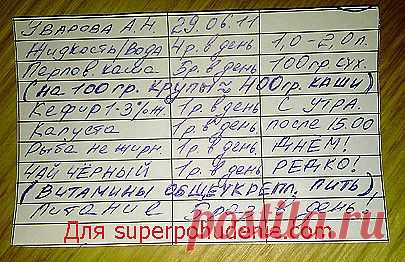 УВАРОВА А.Н. 29.06.11
Жидкость/вода 4р. в день 1,0-2,0 л.
Перлов. каша 5р. в день 100 гр. сух.
(на 100 гр. крупы ≈ 400 гр. каши)
Кефир 1-3% ж. 1 р. в день С УТРА.
Капуста 1 р. в день после 15.00
Рыба не жирн. 1 р. в день ДНЁМ!
ЧАЙ ЧЁРНЫЙ 1 р. в день РЕДКО!
(ВИТАМИНЫ ОБЩЕУКРЕПЛ. ПИТЬ)
Питание 5 раз в день!
Для superpohudenie.com
postila.ru